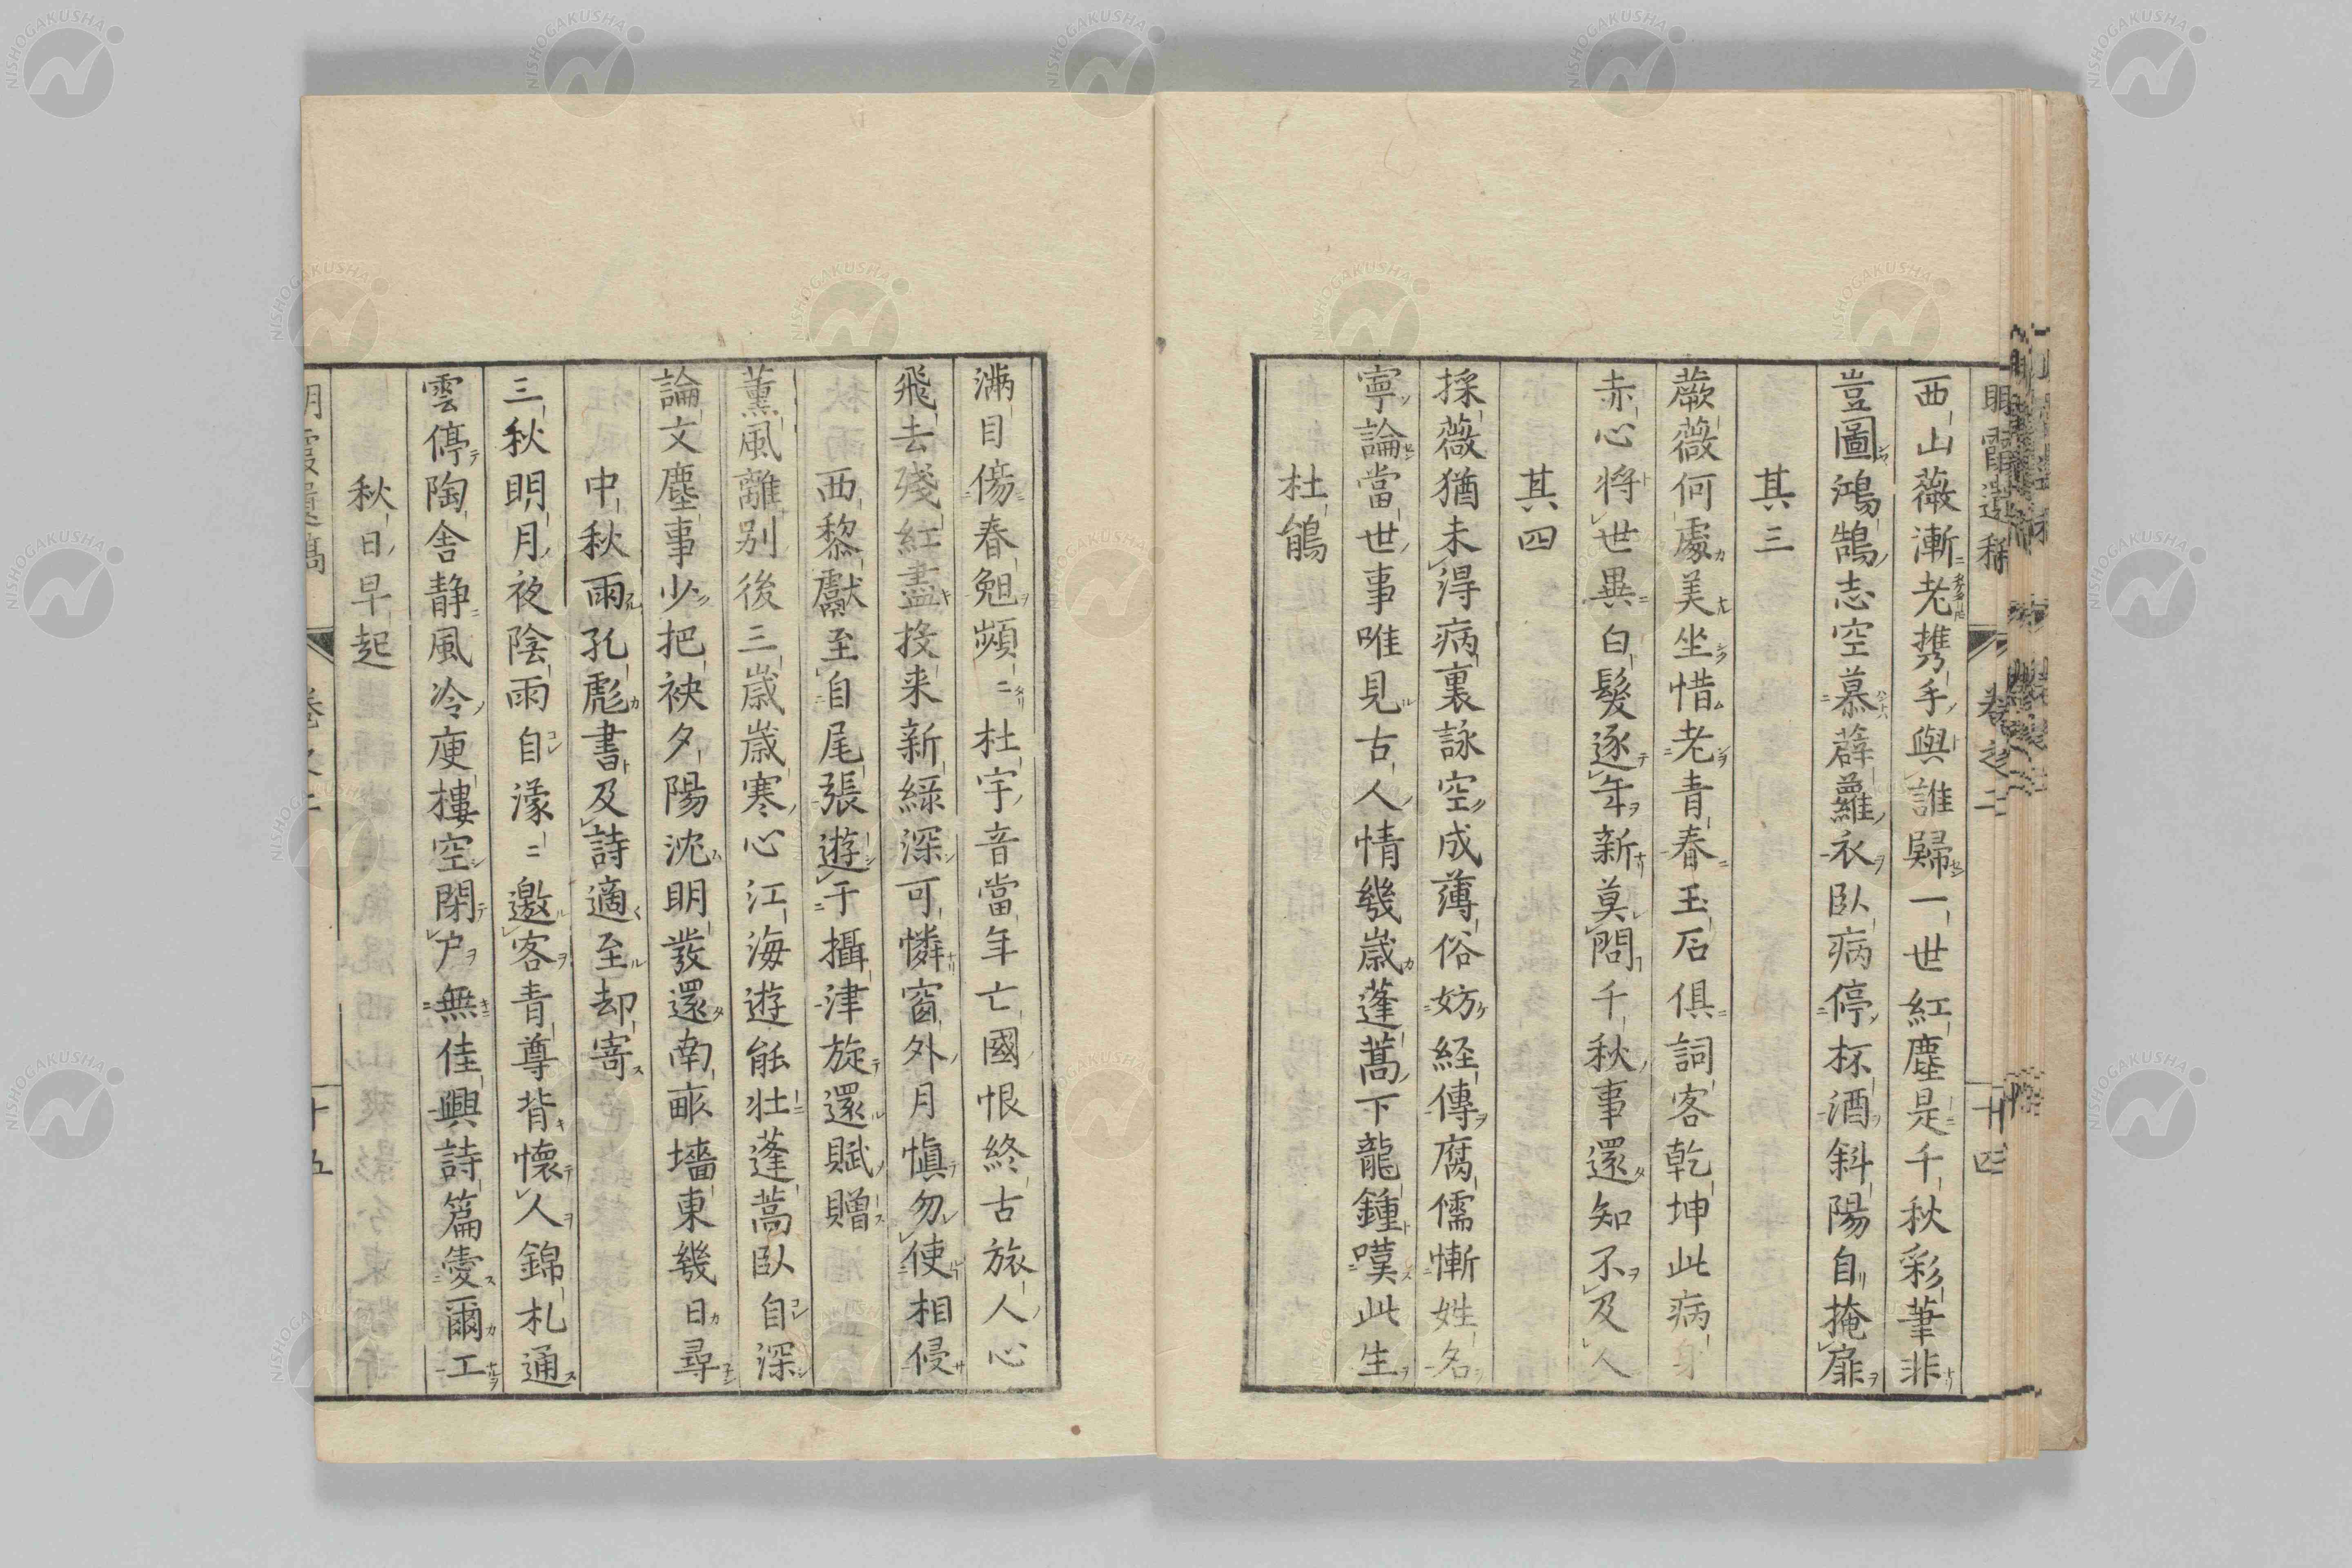 明霞遺稿 卷之二 十四
西山薇漸老携手與誰歸一世紅塵是千秋彩筆非
豈圖鴻鵠志空慕薜蘿衣臥病停杯酒斜陽自掩扉
其三
蕨薇何處美坐惜老青春玉石俱詞客乾坤此病身
赤心將世異白髮逐年新莫問千秋事還知不及人
其四
採薇猶未得病裏詠空成薄俗妨経傳腐儒慚姓名
寧論當世事唯見古人情幾歳蓬蒿下龍鍾嘆此生
杜鵑
滿目傷春魂頻〻杜宇音當年亡國恨終古旅人心
飛去殘紅盡投来新緑深可憐窗外月愼勿使相侵
西黎獻至自尾張遊于攝津旋還賦贈
薫風離别後三歳歳寒心江海遊能壮蓬蒿臥自深
論文塵事少把袂夕陽沈明發還南畝墻東幾日尋
中秋雨孔彪書及詩適至却寄
三秋明月夜陰雨自濛〻邀客青尊背懷人錦札通
雲停陶舎静風冷庾樓空閉户無佳興詩篇愛爾工
秋日早起
明霞遺稿 卷之二 十五
NISHOGAKUSHA